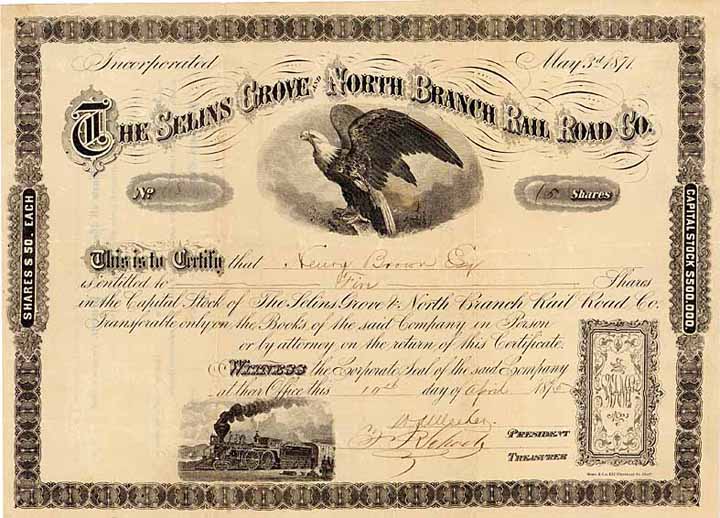 Incorporated May 3d 1871.
THE SELINS GROVE AND NORTH BRANCH RAIL ROAD CO.
No.
Shares
SHARES $50. EACH
CAPITAL STOCK $500,000.
This is to Certify that Henry Brown Esq
is entitled to Five Shares
in the Capital Stock of The Selins Grove & North Branch Rail Road Co.
Transferable only on the Books of the said Company in Person
or by attorney on the return of this Certificate.
WITNESS the Corporate Seal of the said Company
at their Office this 10th day of April 187
PRESIDENT
TREASURER